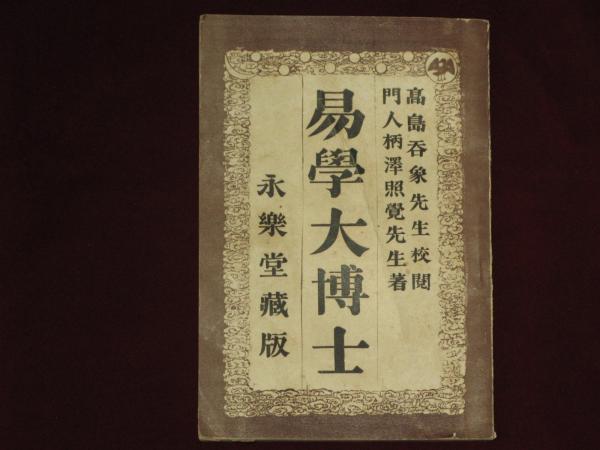 高島呑象先生校閱
門人柄澤照覺先生著
易學大博士
永樂堂藏版